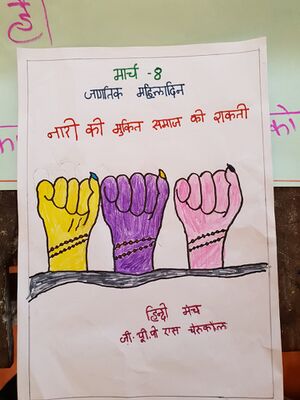 मार्च - 8
जागतिक महिलादिन
नारी की मुक्ति समाज की शक्ती
हिन्दी मंच
जी. यू. पी. एस चेरुकोल